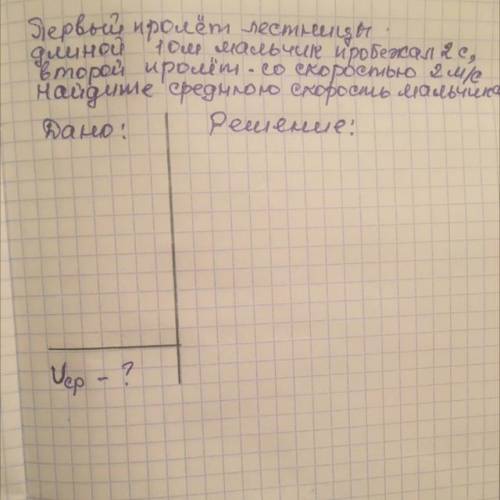 Первый пролёт лестницы
длиной 10м мальчик пробежал 2 с,
второй пролёт - со скоростью 2 м/с
Найдите среднюю скорость мальчика
Дано: Решение:
υср - ?